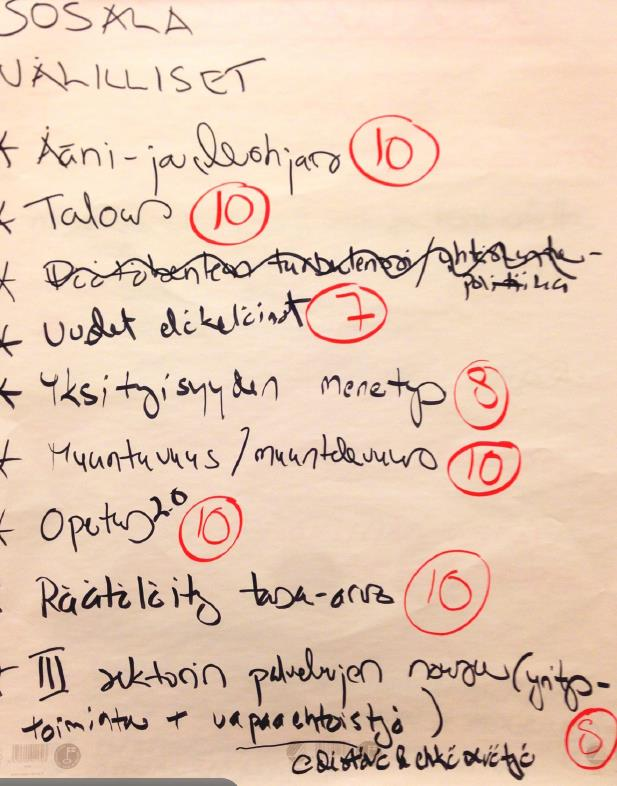 SOSALA
VÄLILLISET
* Ääni- ja eleohjaus 10
* Talous 10
* Päätöksenteon turbulenssi / yhteiskunta-
politiikka
* Uudet eläkeläiset 7
* Yksityisyyden menetys 8
* Muuntuvuus / muuntelevuus 10
* Opetus 2.0 10
Räätälöity tasa-arvo 10
* III sektorin palvelujen nousu (yritys-
toiminta + vapaaehtoistyö) 8
ehkäisevätyö